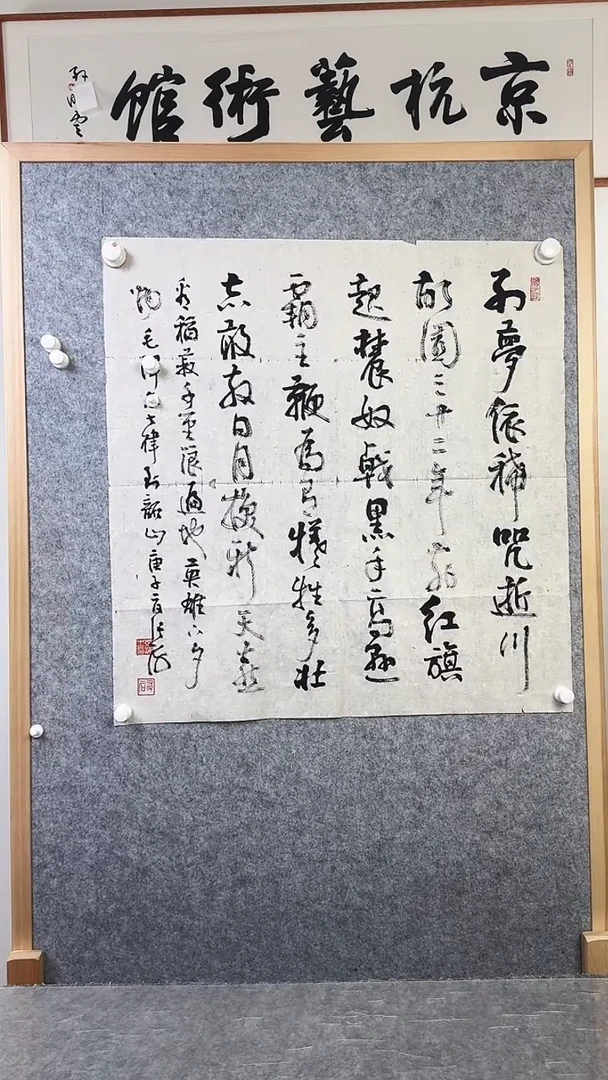 京杭藝術館
别夢依稀咒逝川
故園三十二年前红旗
起農奴戟黑手高懸
霸主鞭为有犧牲多壮
志敢教日月换新天喜
看稻菽千重浪遍地英雄下夕
烟毛泽东七律到韶山庚子